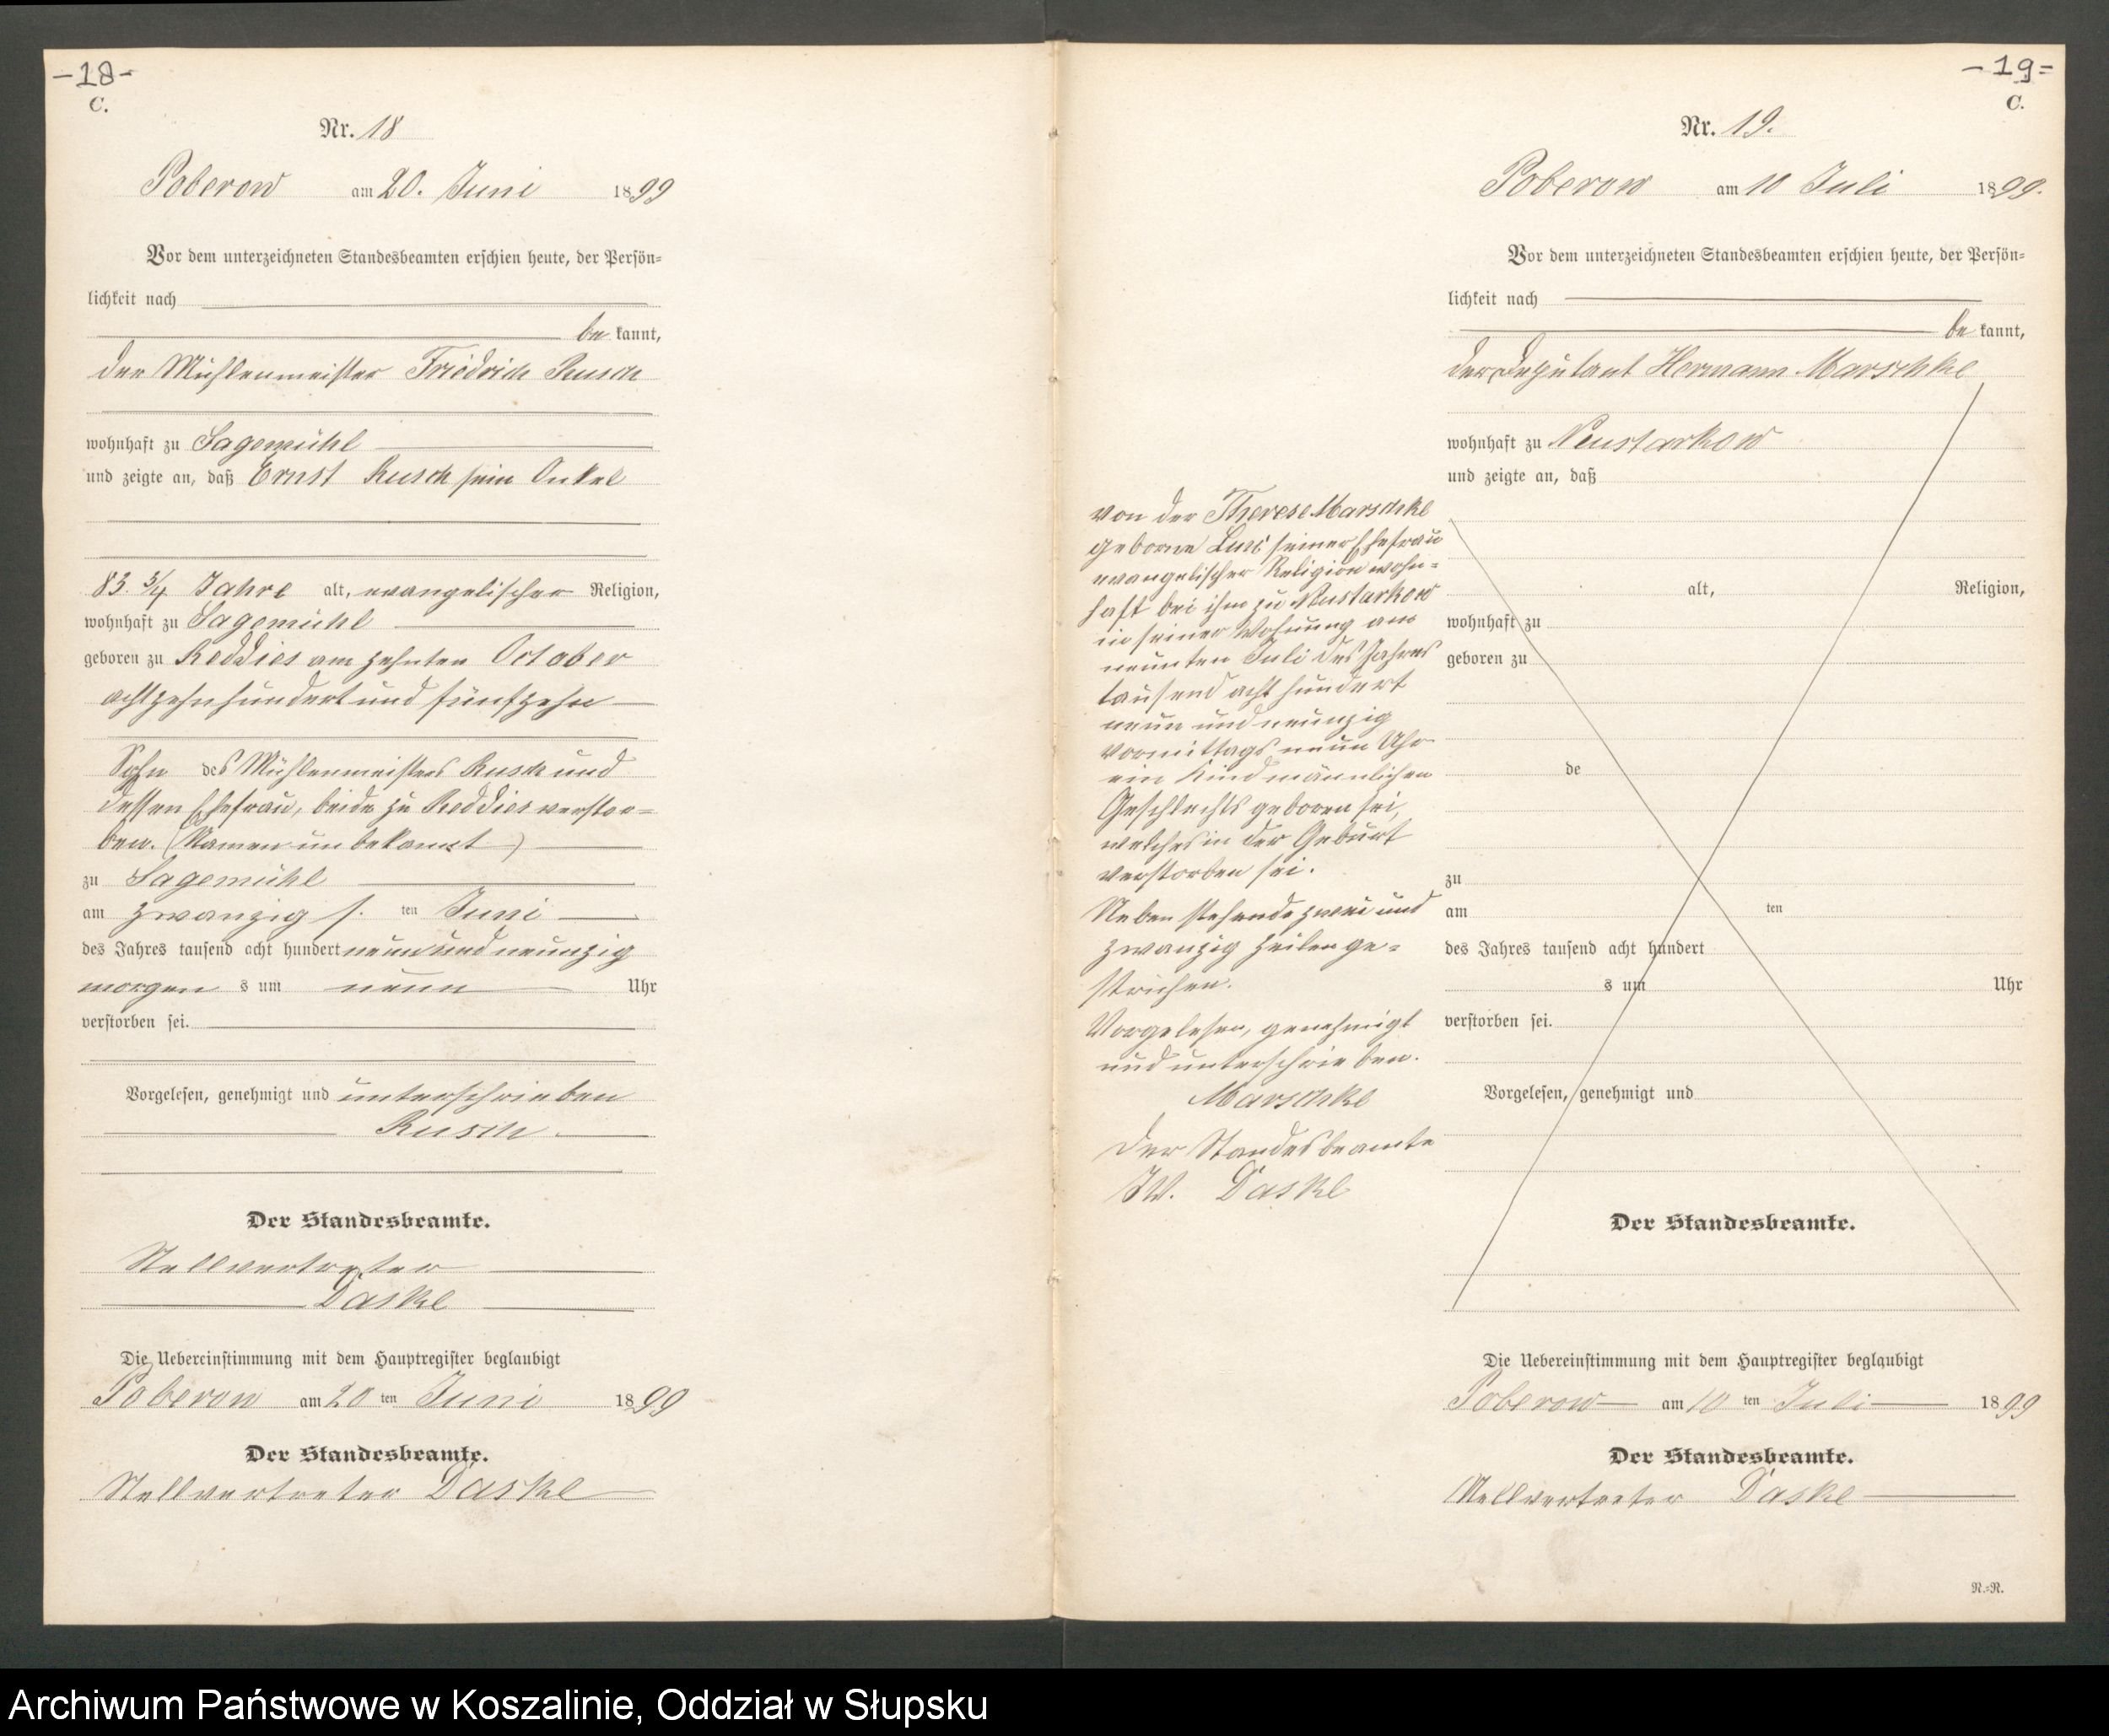 -18-
C.
Nr. 18
Poberow am 20. Juni 1899
Vor dem unterzeichneten Standesbeamten erschien heute, der Persön=
lichkeit nach
be kannt,
der Mühlenmeister Friedrich Rusch
wohnhaft zu Sagemühl
und zeigte an, daß Ernst Rusch sein Onkel
83. 3/4 Jahre alt, evangelischer Religion,
wohnhaft zu Sagemühl
geboren zu Reddies am zehnten October
achtzehnhundert und fünfzehn
Sohn des Mühlenmeisters Rusch und
dessen Ehefrau, beide zu Reddies verstor=
ben. (Namen unbekannt)
zu Sagemühl
am zwanzig s. ten Juni
des Jahres tausend acht hundert neun und neunzig
morgen s um neun Uhr
verstorben sei.
Vorgelesen, genehmigt und unterschrieben
Rusch
Der Standesbeamte.
Stellvertreter
Daske
Die Uebereinstimmung mit dem Hauptregister beglaubigt
Poberow am 20 ten Juni 1899
Der Standesbeamte.
Stellvertreter Daske
-19=
C.
Nr. 19.
Poberow am 10 Juli 1899.
Vor dem unterzeichneten Standesbeamten erschien heute, der Persön=
lichkeit nach
be kannt,
der Deputant Hermann Marschke
wohnhaft zu Neustarkow
und zeigte an, daß
von der Therese Marschke
geborne seiner Ehefrau
evangelischer Religion wohn=
haft bei ihm zu Neustarkow
in seiner Wohnung am
neunten Juli des Jahres
tausend acht hundert
neun und neunzig
Vormittags neun Uhr
ein Kind männlichen
Geschlechts geboren sei,
welches in der Geburt
verstorben sei.
Nebenstehende zwei und
zwanzig Zeilen ge=
strichen.
Vorgelesen, genehmigt
und unterschrieben.
Marschke
Der Standesbeamte
IV. Daske
alt, Religion,
wohnhaft zu
geboren zu
de
zu
am ten
des Jahres tausend acht hundert
s um Uhr
verstorben sei.
Vorgelesen, genehmigt und
Der Standesbeamte.
Die Uebereinstimmung mit dem Hauptregister beglaubigt
Poberow am 10 ten Juli 1899
Der Standesbeamte.
Stellvertreter Daske
N.=N.
Archiwum Państwowe w Koszalinie, Oddział w Słupsku